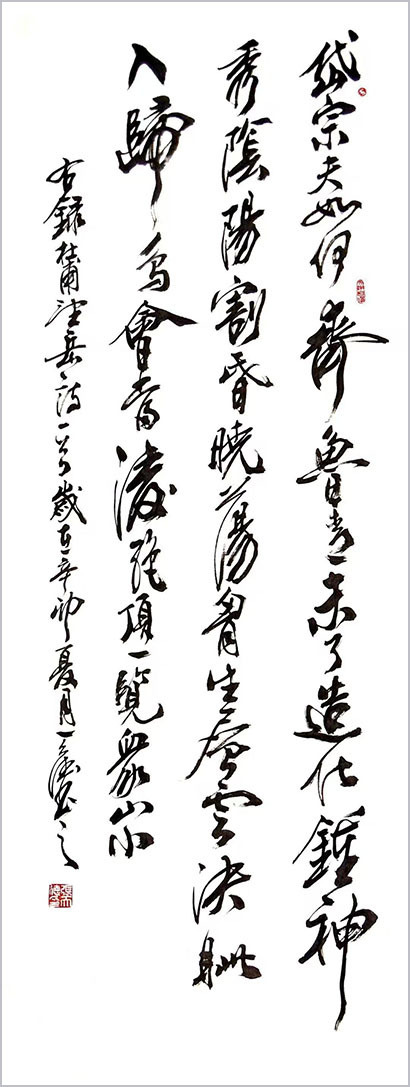 岱宗夫如何齊魯青未了造化鍾神
秀陰陽割昏曉蕩胷生層雲決眦
入歸鳥會當凌絕頂一覽衆山小
右錄杜甫望岳詩一首歲在辛卯夏月